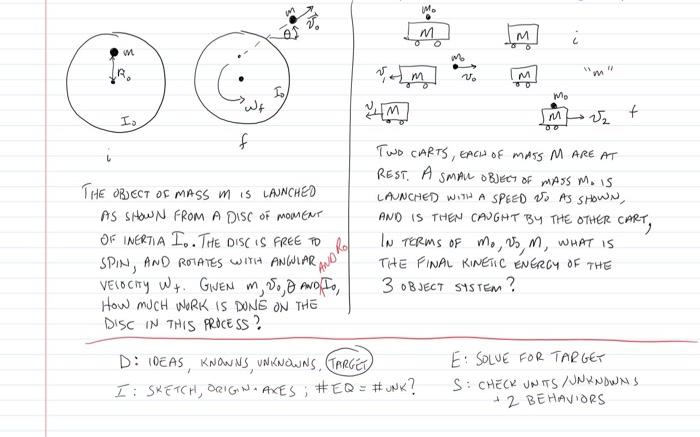 m
R₀
I₀
i
m
v₀
θ
I₀
ωf
f
THE OBJECT OF MASS m IS LAUNCHED
AS SHOWN FROM A DISC OF MOMENT
OF INERTIA I₀. THE DISC IS FREE TO
SPIN, AND ROTATES WITH ANGULAR
VELOCITY ωf. GIVEN m, v₀, θ AND I₀, AND R₀
HOW MUCH WORK IS DONE ON THE
DISC IN THIS PROCESS?
m₀
M M i
m₀
v₁ M v₀ M "m"
m₀
v₁ M M v₂ f
TWO CARTS, EACH OF MASS M ARE AT
REST. A SMALL OBJECT OF MASS m₀ IS
LAUNCHED WITH A SPEED v₀ AS SHOWN,
AND IS THEN CAUGHT BY THE OTHER CART,
IN TERMS OF m₀, v₀, M, WHAT IS
THE FINAL KINETIC ENERGY OF THE
3 OBJECT SYSTEM?
D: IDEAS, KNOWNS, UNKNOWNS, TARGET
I: SKETCH, ORIGIN + AXES; #EQ = #UNK?
E: SOLVE FOR TARGET
S: CHECK UNITS/UNKNOWNS
+ 2 BEHAVIORS